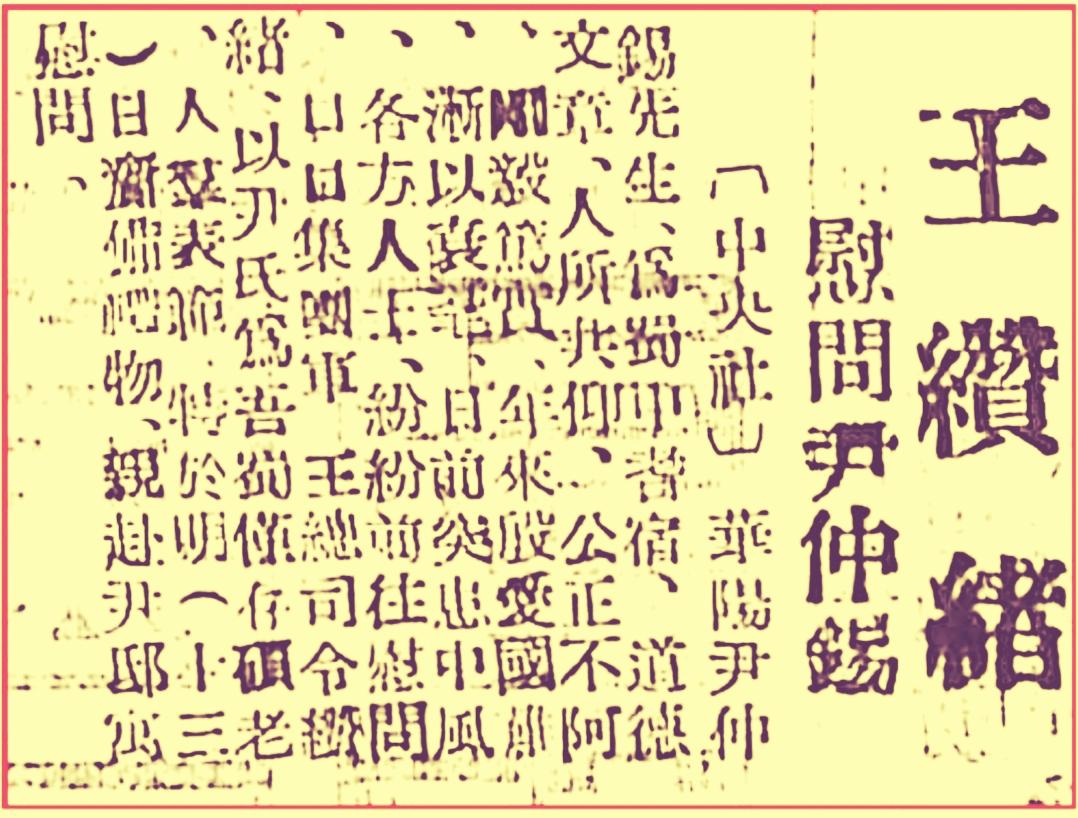 王纘緒
慰問尹仲錫
（中央社）華陽尹仲
錫先生、爲蜀中耆宿、道德
文章、人所共仰、公正不阿
、剛毅篤實、年來殷憂國難
、漸以衰耗、日前突患中風
、各方人士、紛紛前往慰問
、口日集團軍王總司令纘
緒、以尹氏爲吾蜀僅存碩老
、人羣表範、特於明（十三
）日齎佩物、親赴尹邸寓
慰問、